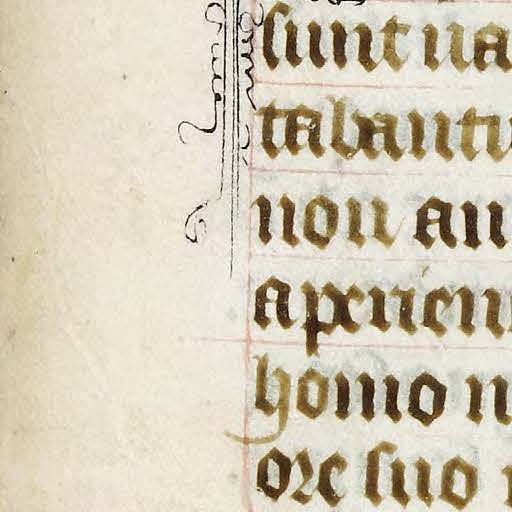 sunt ua
tabantu
non au
aperien
homo n
ore suo